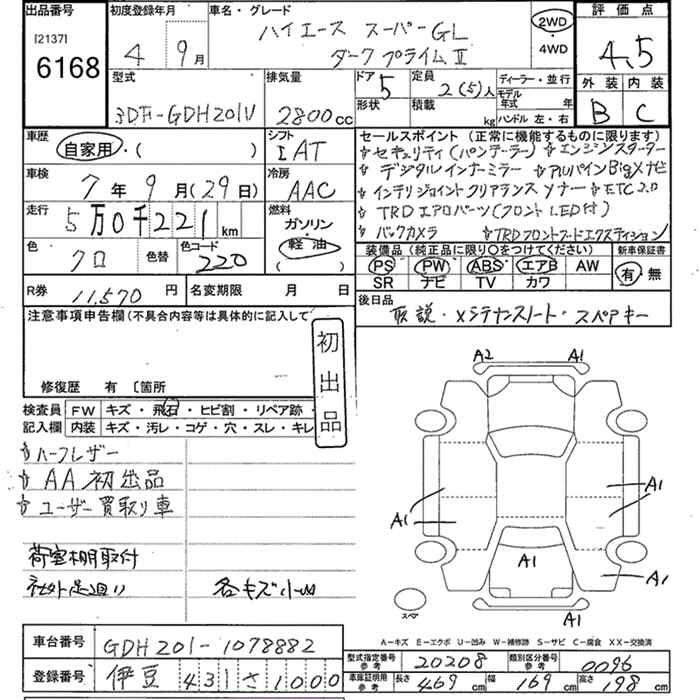 出品番号
[2137]
6168
初度登録年月
4 9月
車名・グレード
ハイエース スーパーGL
ダークプライムⅡ
2WD
・
4WD
評価点
4.5
外装 内装
B C
型式
3DF-GDH201V
排気量
2800cc
ドア 5
形状
定員
2(5)人
積載
kg
ディーラー・並行
モデル年式 年
ハンドル 左・右
車歴
自家用・( )
シフト
IAT
車検
7年9月(29日)
冷房
AAC
走行
5万0千221km
燃料
ガソリン
・
軽油
( )
色
クロ
色替
色コード
220
セールスポイント (正常に機能するものに限ります)
☆セキュリティ(パンテーラー) ☆エンジンスターター
☆デジタルインナーミラー ☆アルパインBigXナビ
☆インテリジョイントクリアランスソナー ☆ETC2.0
☆TRDエアロパーツ(フロントLED付)
☆バックカメラ ☆TRDフロントフードエクステイション
装備品 (純正品に限り〇をつけてください)
新車保証書
PS PW ABS エアB AW
SR ナビ TV カワ
有・無
R券 11,570円
名変期限 月 日
後日品
取説・メンテナンスノート・スペアキー
注意事項申告欄(不具合内容等は具体的に記入して
初出品
修復歴 有 〔箇所
検査員
記入欄
FW キズ・飛石・ヒビ割・リペア跡・
内装 キズ・汚レ・コゲ・穴・スレ・キレ
☆ハーフレザー
☆AA初出品
☆ユーザー買取り車
荷室棚取付
社外足廻り
各キズ小凹
A2 A1
A1
A1
A1
A1
A1
スペア
A-キズ E-エクボ U-凹み W-補修跡 S-サビ C-腐食 XX-交換済
車台番号
GDH201-1078882
登録番号
伊豆 431 さ 1000
型式指定番号
参考
20208
類別区分番号
参考
0096
車庫証明記載
参考
長さ 469cm
幅 169cm
高さ 198cm